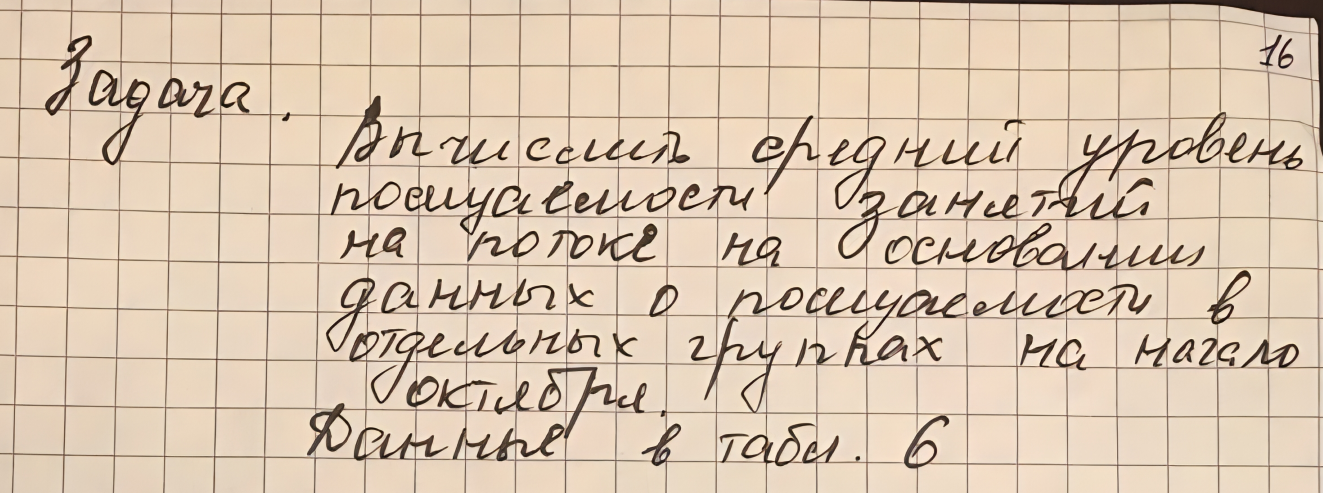 16
Задача.
Вычислить средний уровень
посещаемости занятий
на потоке на основании
данных о посещаемости в
отдельных группах на начало
октября.
Данные в табл. 6